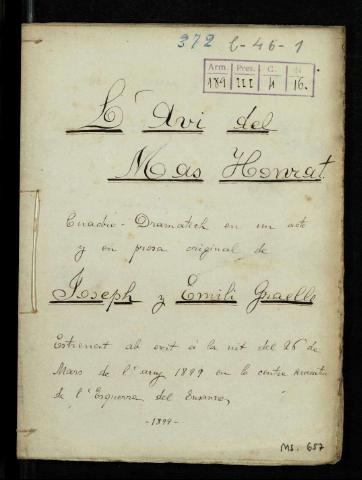 372 C-46-1
Arm. Pres. C. N.
189 III 4 16.
L'Avi del
Mas Honrat
Cuadro-Dramatich en un acte
y en prosa original de
Joseph y Emili Graells
Estrenat ab exit á la nit del 26 de
Mars de l'any 1899 en lo centre
de l'Esquerra del Ensanxe,
-1899-
MS. 657